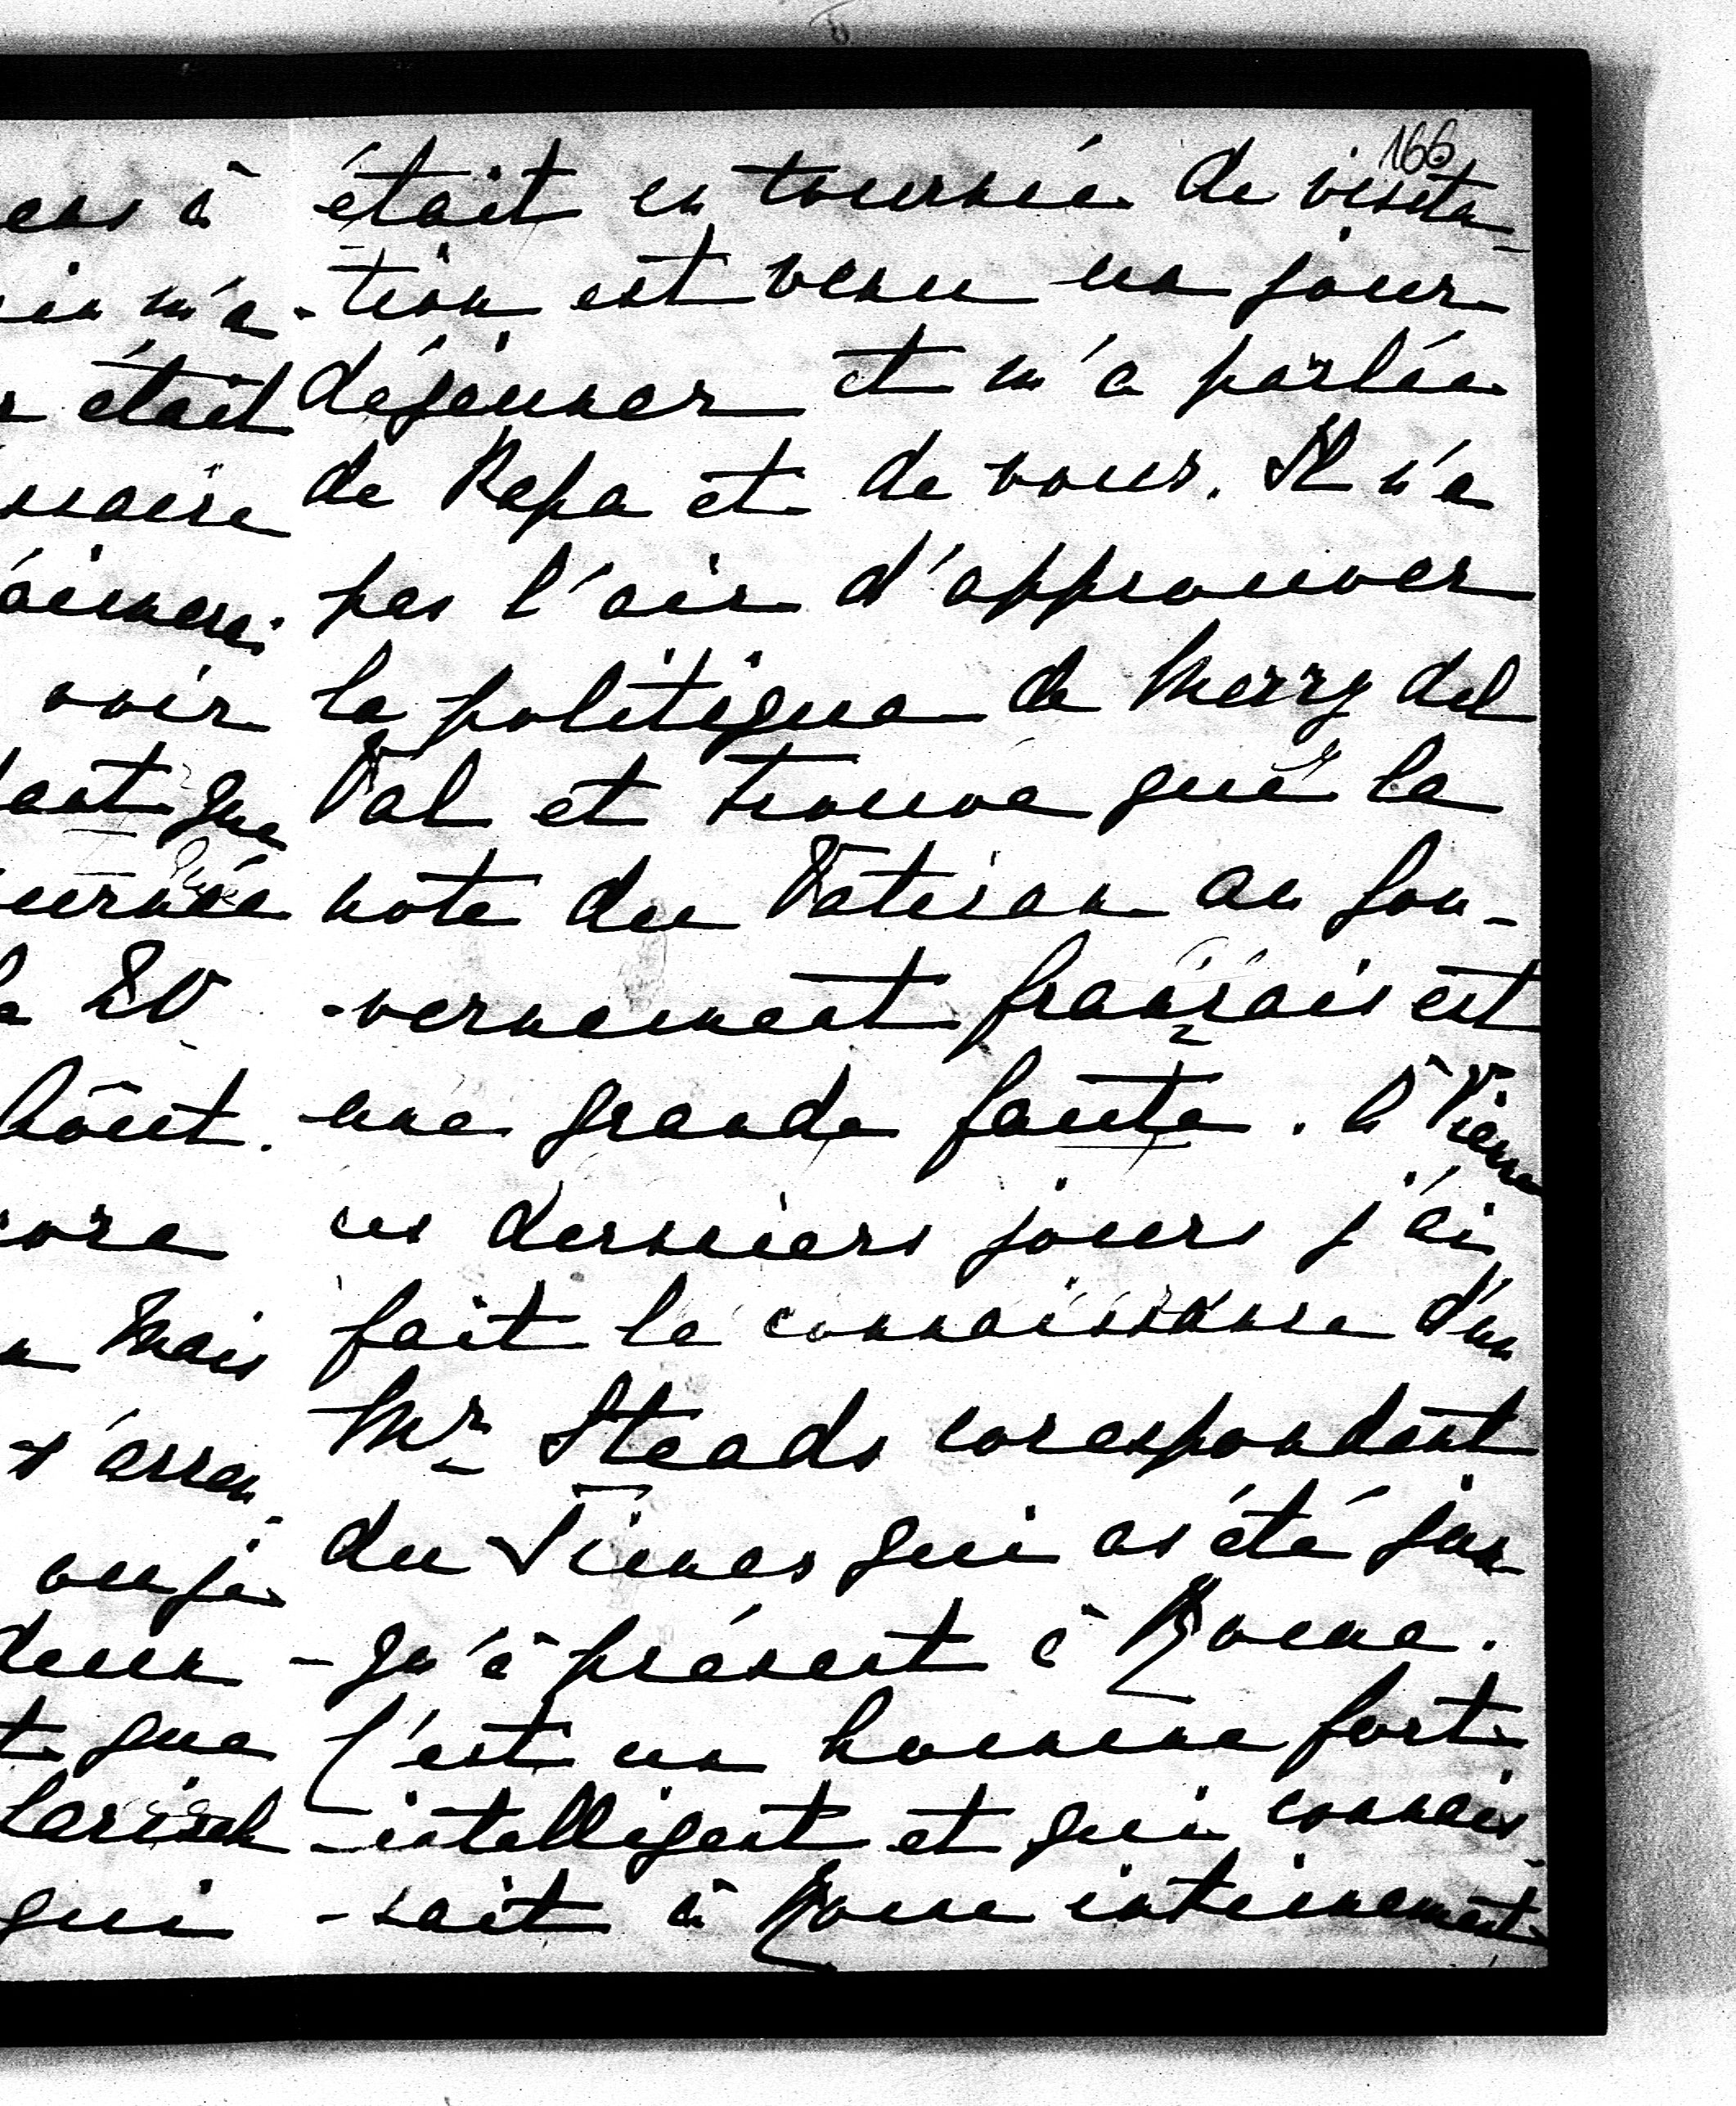 166
était en tournée de visita-
-tion est venu un jour
déjeuner et m'a parlée
de Papa et de vous. Il n'a
pas l'air d'approuver
la politique de Merry del
Val et trouve que la
note du Vatican au gou-
-vernement français est
une grande faute. A Vienne
ces derniers jours j'ai
fait la connaissance d'un
Mr Steads corespondent
du Times qui as été jus-
-qu'à présent à Rome.
C'est un homme fort
intelligent et qui connais-
-sait à Rome intimement
à
m'a
était
voir
que
le 20
Août.
Mais
s'arran
ou je
deux
que
Larisch
qui